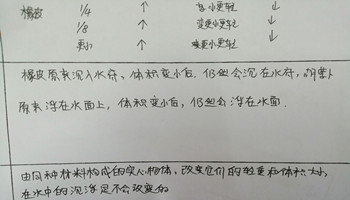 橡皮 1/4 ↑ 变小更轻 ↓
1/8 ↑ 变更小更轻 ↓
更小 ↑ 变更小更轻 ↓
橡皮原来沉入水中、体积变小后，仍然会沉在水中，胡萝卜
原来浮在水面上，体积变小后，仍然会浮在水面．
由同种材料构成的实心物体，改变它们的轻重和体积大小，
在水中的沉浮是不会改变的